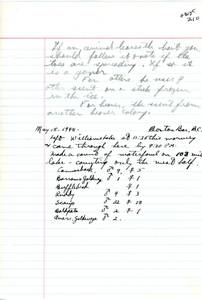 210
If an animal leaves the bait you
should follow it & note if the
toes are spreading. If so it
is a
For otter he used
otter scent on a stick frozen
in the ice.
For beaver, the scent from
another beaver colony.
May 15. 1948. Boston Bar, B.C.
left Williams Lake at 11:30 this morning
& came through here by 9:30 PM.
made a count of waterfowl on 103 mile
lake - counting only the near half.
Canvasback, ♂ 9, ♀ 5
Barrows Goldeneye ♂ 1 ♀ 1
Bufflehead ♀ 1
Ruddy ♂ 9 ♀ 3
Scaup ♂ 22 ♀ 10
Baldpate ♂ 2 ♀ 1
♂ 2